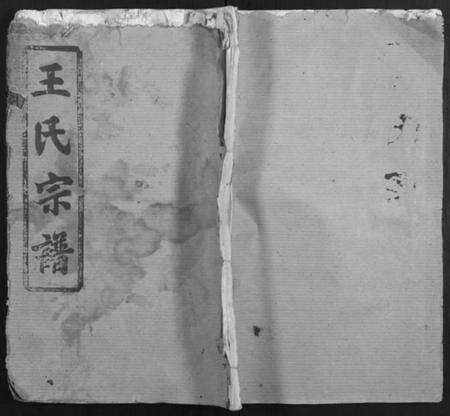 王氏宗譜